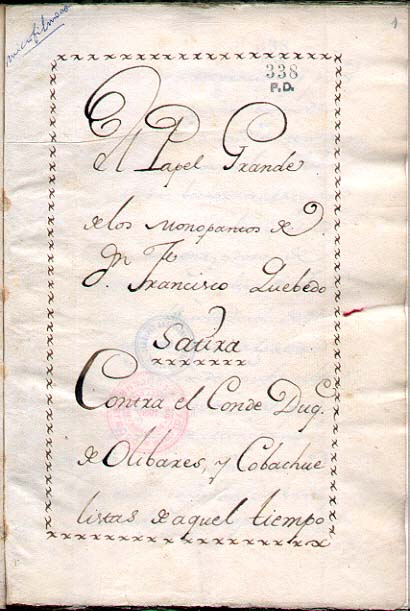 microfilmado
1
338
P.D.
El Papel Grande
de los Monopantos de
Dn. Francisco Quebedo
Satira
Contra el Conde Duq.e
de Olibares, y Cobachue
listas de aquel tiempo